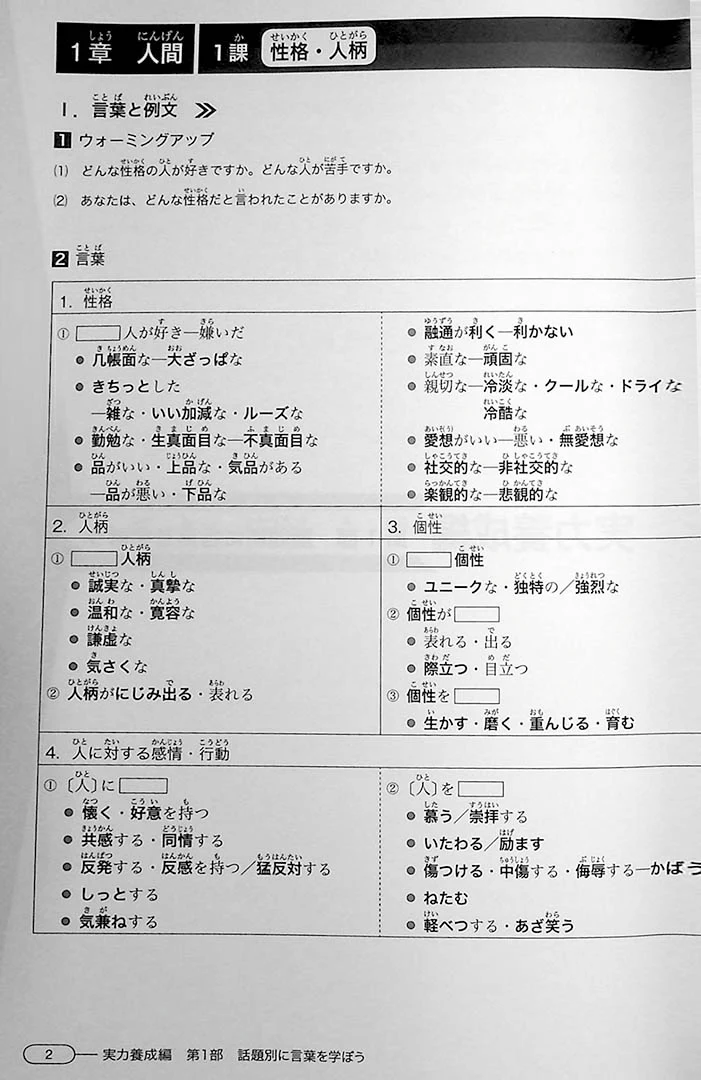 1章 人間 1課 性格・人柄
Ⅰ. 言葉と例文 ≫
1 ウォーミングアップ
(1) どんな性格の人が好きですか。どんな人が苦手ですか。
(2) あなたは、どんな性格だと言われたことがありますか。
2 言葉
1. 性格
① □人が好き―嫌いだ
● 几帳面な―大ざっぱな
● きちっとした
―雑な・いい加減な・ルーズな
● 勤勉な・生真面目な―不真面目な
● 品がいい・上品な・気品がある
―品が悪い・下品な
● 融通が利く―利かない
● 素直な―頑固な
● 親切な―冷淡な・クールな・ドライな
冷酷な
● 愛想がいい―悪い・無愛想な
● 社交的な―非社交的な
● 楽観的な―悲観的な
2. 人柄
① □人柄
● 誠実な・真摯な
● 温和な・寛容な
● 謙虚な
● 気さくな
② 人柄がにじみ出る・表れる
3. 個性
① □個性
● ユニークな・独特の／強烈な
② 個性が□
● 表れる・出る
● 際立つ・目立つ
③ 個性を□
● 生かす・磨く・重んじる・育む
4. 人に対する感情・行動
① 〔人〕に□
● 懐く・好意を持つ
● 共感する・同情する
● 反発する・反感を持つ／猛反対する
● しっとする
● 気兼ねする
② 〔人〕を□
● 慕う／崇拝する
● いたわる／励ます
● 傷つける・中傷する・侮辱する―かばう
● ねたむ
● 軽べつする・あざ笑う
2 実力養成編 第1部 話題別に言葉を学ぼう